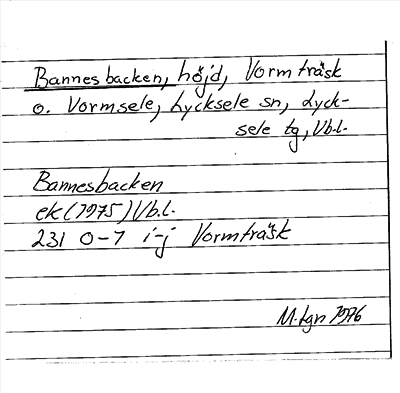 Bannesbacken, höjd, Vormträsk
o. Vormsele, Lycksele sn, Lyck-
sele tg, Vb.l.
Bannesbacken
ek (1975) Vb.l.
231 0-7 i-j Vormträsk
M. tgn 1976